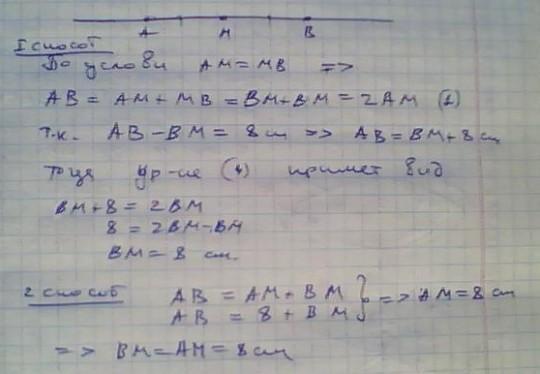 A M B
I способ
По услови AM = MB =>
AB = AM + MB = BM + BM = 2AM (1)
т.к. AB - BM = 8 см => AB = BM + 8 см
Тогда ур-ие (1) примет вид
BM + 8 = 2BM
8 = 2BM - BM
BM = 8 см.
2 способ AB = AM + BM
AB = 8 + BM } => AM = 8 см
=> BM = AM = 8 см